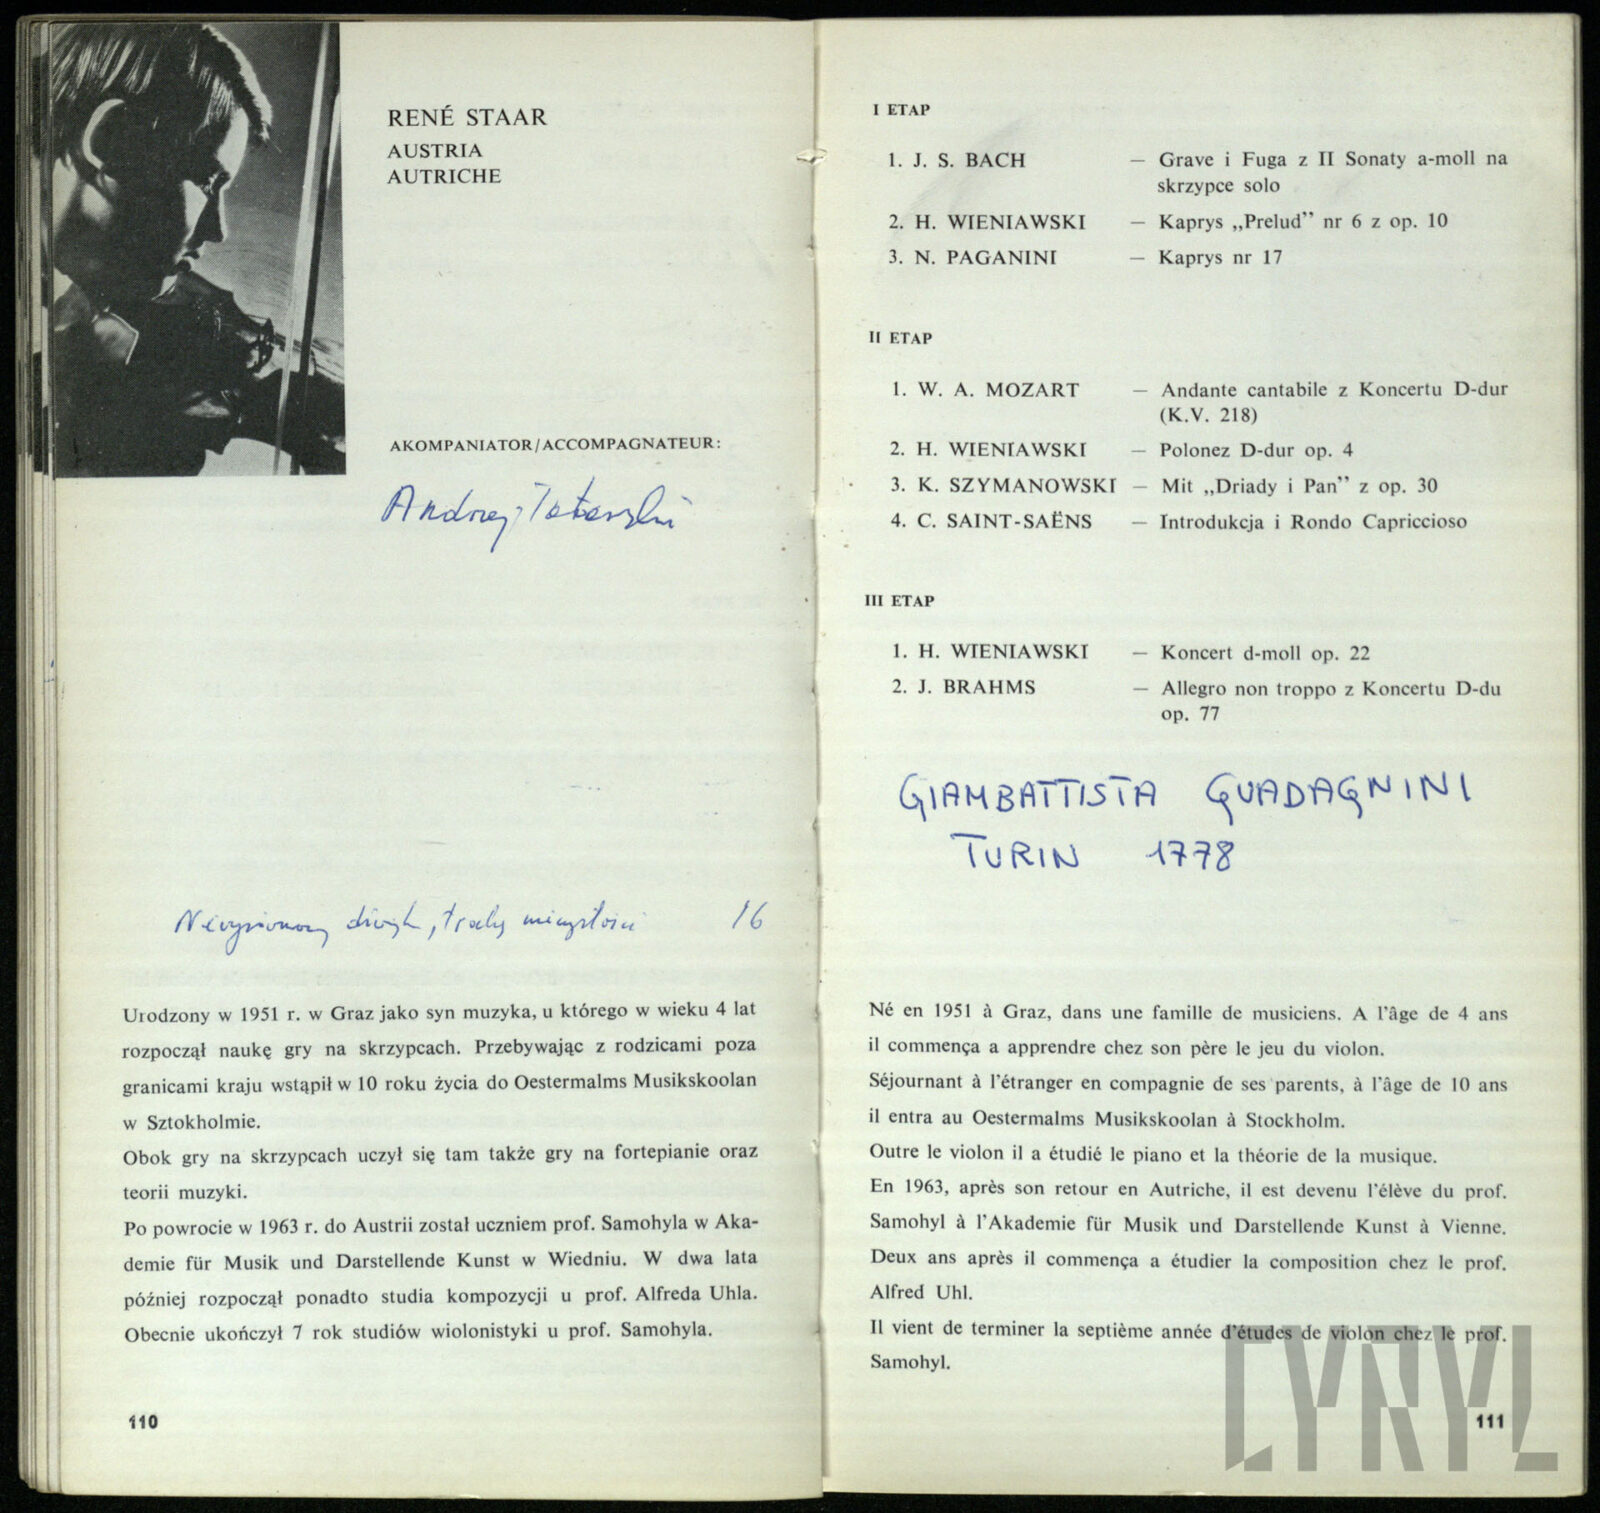 RENÉ STAAR
AUSTRIA
AUTRICHE
AKOMPANIATOR/ACCOMPAGNATEUR:
Andrzej Tatarski
16
Urodzony w 1951 r. w Graz jako syn muzyka, u którego w wieku 4 lat
rozpoczął naukę gry na skrzypcach. Przebywając z rodzicami poza
granicami kraju wstąpił w 10 roku życia do Oestermalms Musikskoolan
w Sztokholmie.
Obok gry na skrzypcach uczył się tam także gry na fortepianie oraz
teorii muzyki.
Po powrocie w 1963 r. do Austrii został uczniem prof. Samohyla w Aka-
demie für Musik und Darstellende Kunst w Wiedniu. W dwa lata
później rozpoczął ponadto studia kompozycji u prof. Alfreda Uhla.
Obecnie ukończył 7 rok studiów wiolonistyki u prof. Samohyla.
110
I ETAP
1. J. S. BACH — Grave i Fuga z II Sonaty a-moll na
skrzypce solo
2. H. WIENIAWSKI — Kaprys „Prelud” nr 6 z op. 10
3. N. PAGANINI — Kaprys nr 17
II ETAP
1. W. A. MOZART — Andante cantabile z Koncertu D-dur
(K.V. 218)
2. H. WIENIAWSKI — Polonez D-dur op. 4
3. K. SZYMANOWSKI — Mit „Driady i Pan” z op. 30
4. C. SAINT-SAËNS — Introdukcja i Rondo Capriccioso
III ETAP
1. H. WIENIAWSKI — Koncert d-moll op. 22
2. J. BRAHMS — Allegro non troppo z Koncertu D-du
op. 77
GIAMBATTISTA GUADAGNINI
TURIN 1778
Né en 1951 à Graz, dans une famille de musiciens. A l'âge de 4 ans
il commença a apprendre chez son père le jeu du violon.
Séjournant à l'étranger en compagnie de ses parents, à l'âge de 10 ans
il entra au Oestermalms Musikskoolan à Stockholm.
Outre le violon il a étudié le piano et la théorie de la musique.
En 1963, après son retour en Autriche, il est devenu l'élève du prof.
Samohyl à l'Akademie für Musik und Darstellende Kunst à Vienne.
Deux ans après il commença a étudier la composition chez le prof.
Alfred Uhl.
Il vient de terminer la septième année d'études de violon chez le prof.
Samohyl.
111
CYRYL